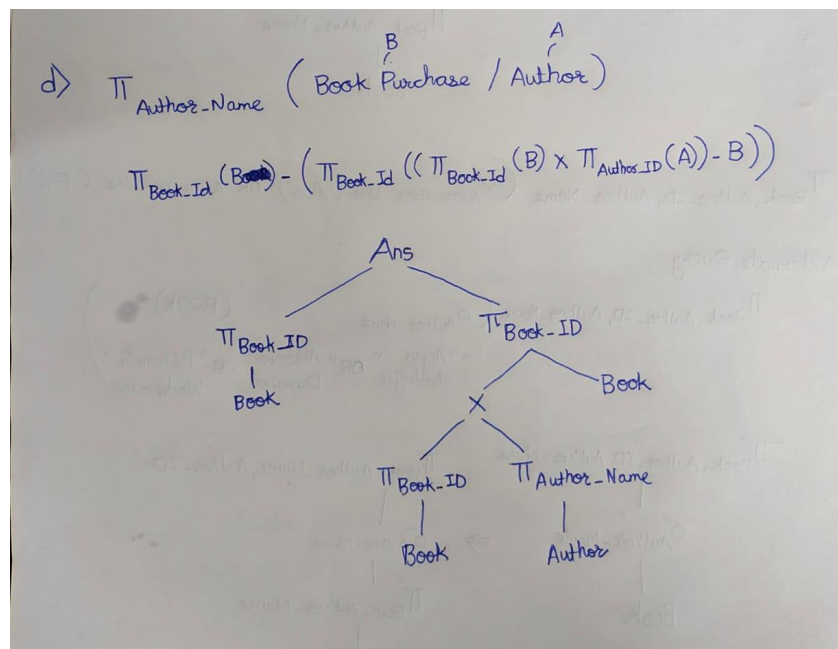 B A
d) Π Author_Name ( Book Purchase / Author )
Π Book_Id (B) - ( Π Book_Id (( Π Book_Id (B) × Π Author_ID (A)) - B ))
Ans
Π Book_ID Π Book_ID
Book × Book
Π Book_ID Π Author_Name
Book Author